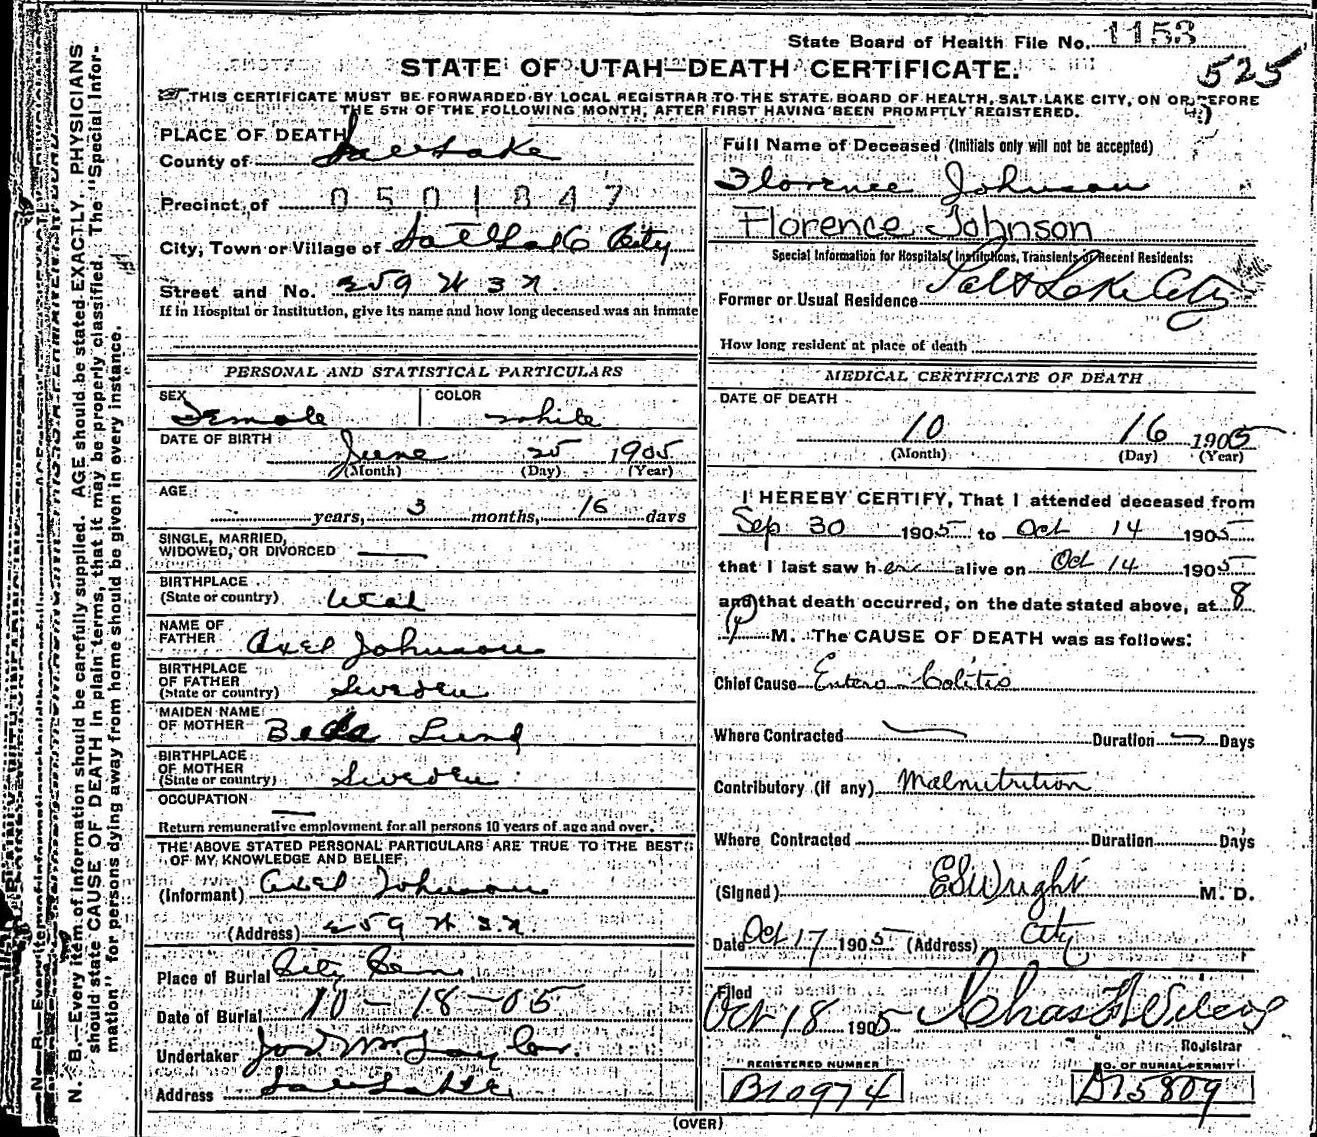 State Board of Health File No. 1153
525
STATE OF UTAH—DEATH CERTIFICATE.
THIS CERTIFICATE MUST BE FORWARDED BY LOCAL REGISTRAR TO THE STATE BOARD OF HEALTH, SALT LAKE CITY, ON OR BEFORE
THE 5TH OF THE FOLLOWING MONTH, AFTER FIRST HAVING BEEN PROMPTLY REGISTERED.
N. B.—Every item of information should be carefully supplied. AGE should be stated EXACTLY. PHYSICIANS
should state CAUSE OF DEATH in plain terms, that it may be properly classified. The "Special Infor-
mation" for persons dying away from home should be given in every instance.
PLACE OF DEATH
County of Salt Lake
Precinct of 0501847
City, Town or Village of Salt Lake City
Street and No. 259 W 3 N.
If in Hospital or Institution, give its name and how long deceased was an inmate
PERSONAL AND STATISTICAL PARTICULARS
SEX Female COLOR white
DATE OF BIRTH June 25 1905
(Month) (Day) (Year)
AGE
years, 3 months, 16 days
SINGLE, MARRIED,
WIDOWED, OR DIVORCED
BIRTHPLACE
(State or country) Utah
NAME OF
FATHER Axel Johnson
BIRTHPLACE
OF FATHER
(State or country) Sweden
MAIDEN NAME
OF MOTHER Beda Lund
BIRTHPLACE
OF MOTHER
(State or country) Sweden
OCCUPATION
Return remunerative employment for all persons 10 years of age and over.
THE ABOVE STATED PERSONAL PARTICULARS ARE TRUE TO THE BEST
OF MY KNOWLEDGE AND BELIEF
(Informant) Axel Johnson
(Address) 259 W 3 N
Place of Burial City Cem
Date of Burial 10-18-05
Undertaker Jos. Wm Taylor
Address Salt Lake
Full Name of Deceased (Initials only will not be accepted)
Florence Johnson
Florence Johnson
Special Information for Hospitals, Institutions, Transients or Recent Residents:
Former or Usual Residence Salt Lake City
How long resident at place of death
MEDICAL CERTIFICATE OF DEATH
DATE OF DEATH
10 16 1905
(Month) (Day) (Year)
I HEREBY CERTIFY, That I attended deceased from
Sep 30 1905 to Oct 14 1905
that I last saw her alive on Oct 14 1905
and that death occurred, on the date stated above, at 8
M. The CAUSE OF DEATH was as follows:
Chief Cause Entero-Colitis
Where Contracted Duration Days
Contributory (if any) Malnutrition
Where Contracted Duration Days
(Signed) ES Wright M. D.
Date Oct 17 1905 (Address) City
Filed
Oct 18 1905 Chas H Wilcox
Registrar
REGISTERED NUMBER
B10974
NO. OF BURIAL PERMIT
D15809
(OVER)